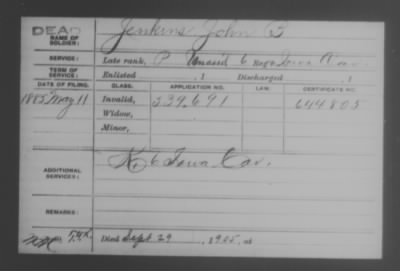 DEAD
NAME OF SOLDIER: Jenkins John B
SERVICE: Late rank, P Unassd 6 Reg't Iowa Cav.
TERM OF SERVICE: Enlisted , 1 Discharged , 1
DATE OF FILING. CLASS. APPLICATION NO. LAW. CERTIFICATE NO.
1885 May 11 Invalid, 539,691 644805
Widow,
Minor,
ADDITIONAL SERVICES: K 6 Iowa Cav.
REMARKS:
Died Sept. 29, 1905, at